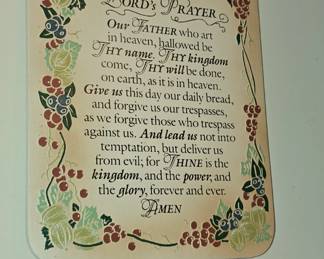 LORD'S PRAYER
OUR FATHER who art
in heaven, hallowed be
THY name. THY kingdom
come, THY will be done,
on earth, as it is in heaven.
Give us this day our daily bread,
and forgive us our trespasses,
as we forgive those who trespass
against us. And lead us not into
temptation, but deliver us
from evil; for THINE is the
kingdom, and the power, and
the glory, forever and ever.
AMEN